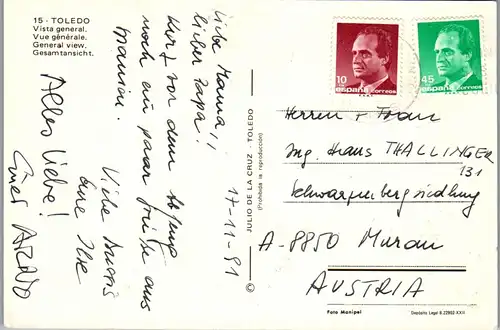 15 - TOLEDO
Vista general.
Vue générale.
General view.
Gesamtansicht.
Liebe Mama,
lieber Papa!
Kurz vor dem
noch ein paar Grüße aus
Manion.
Liebe Bussis
Eure Ilse
Alles Liebe!
Euer ARNO
17-11-91
JULIO DE LA CRUZ - TOLEDO
(Prohibida la reproducción)
10
españa
correos
45
españa
correos
Herrn + Frau
Ing. Hans THALLINGER
Schwarzenbergsiedlung 131
A-8850 Murau
AUSTRIA
Foto Manipel
Depósito Legal B.22902-XXII